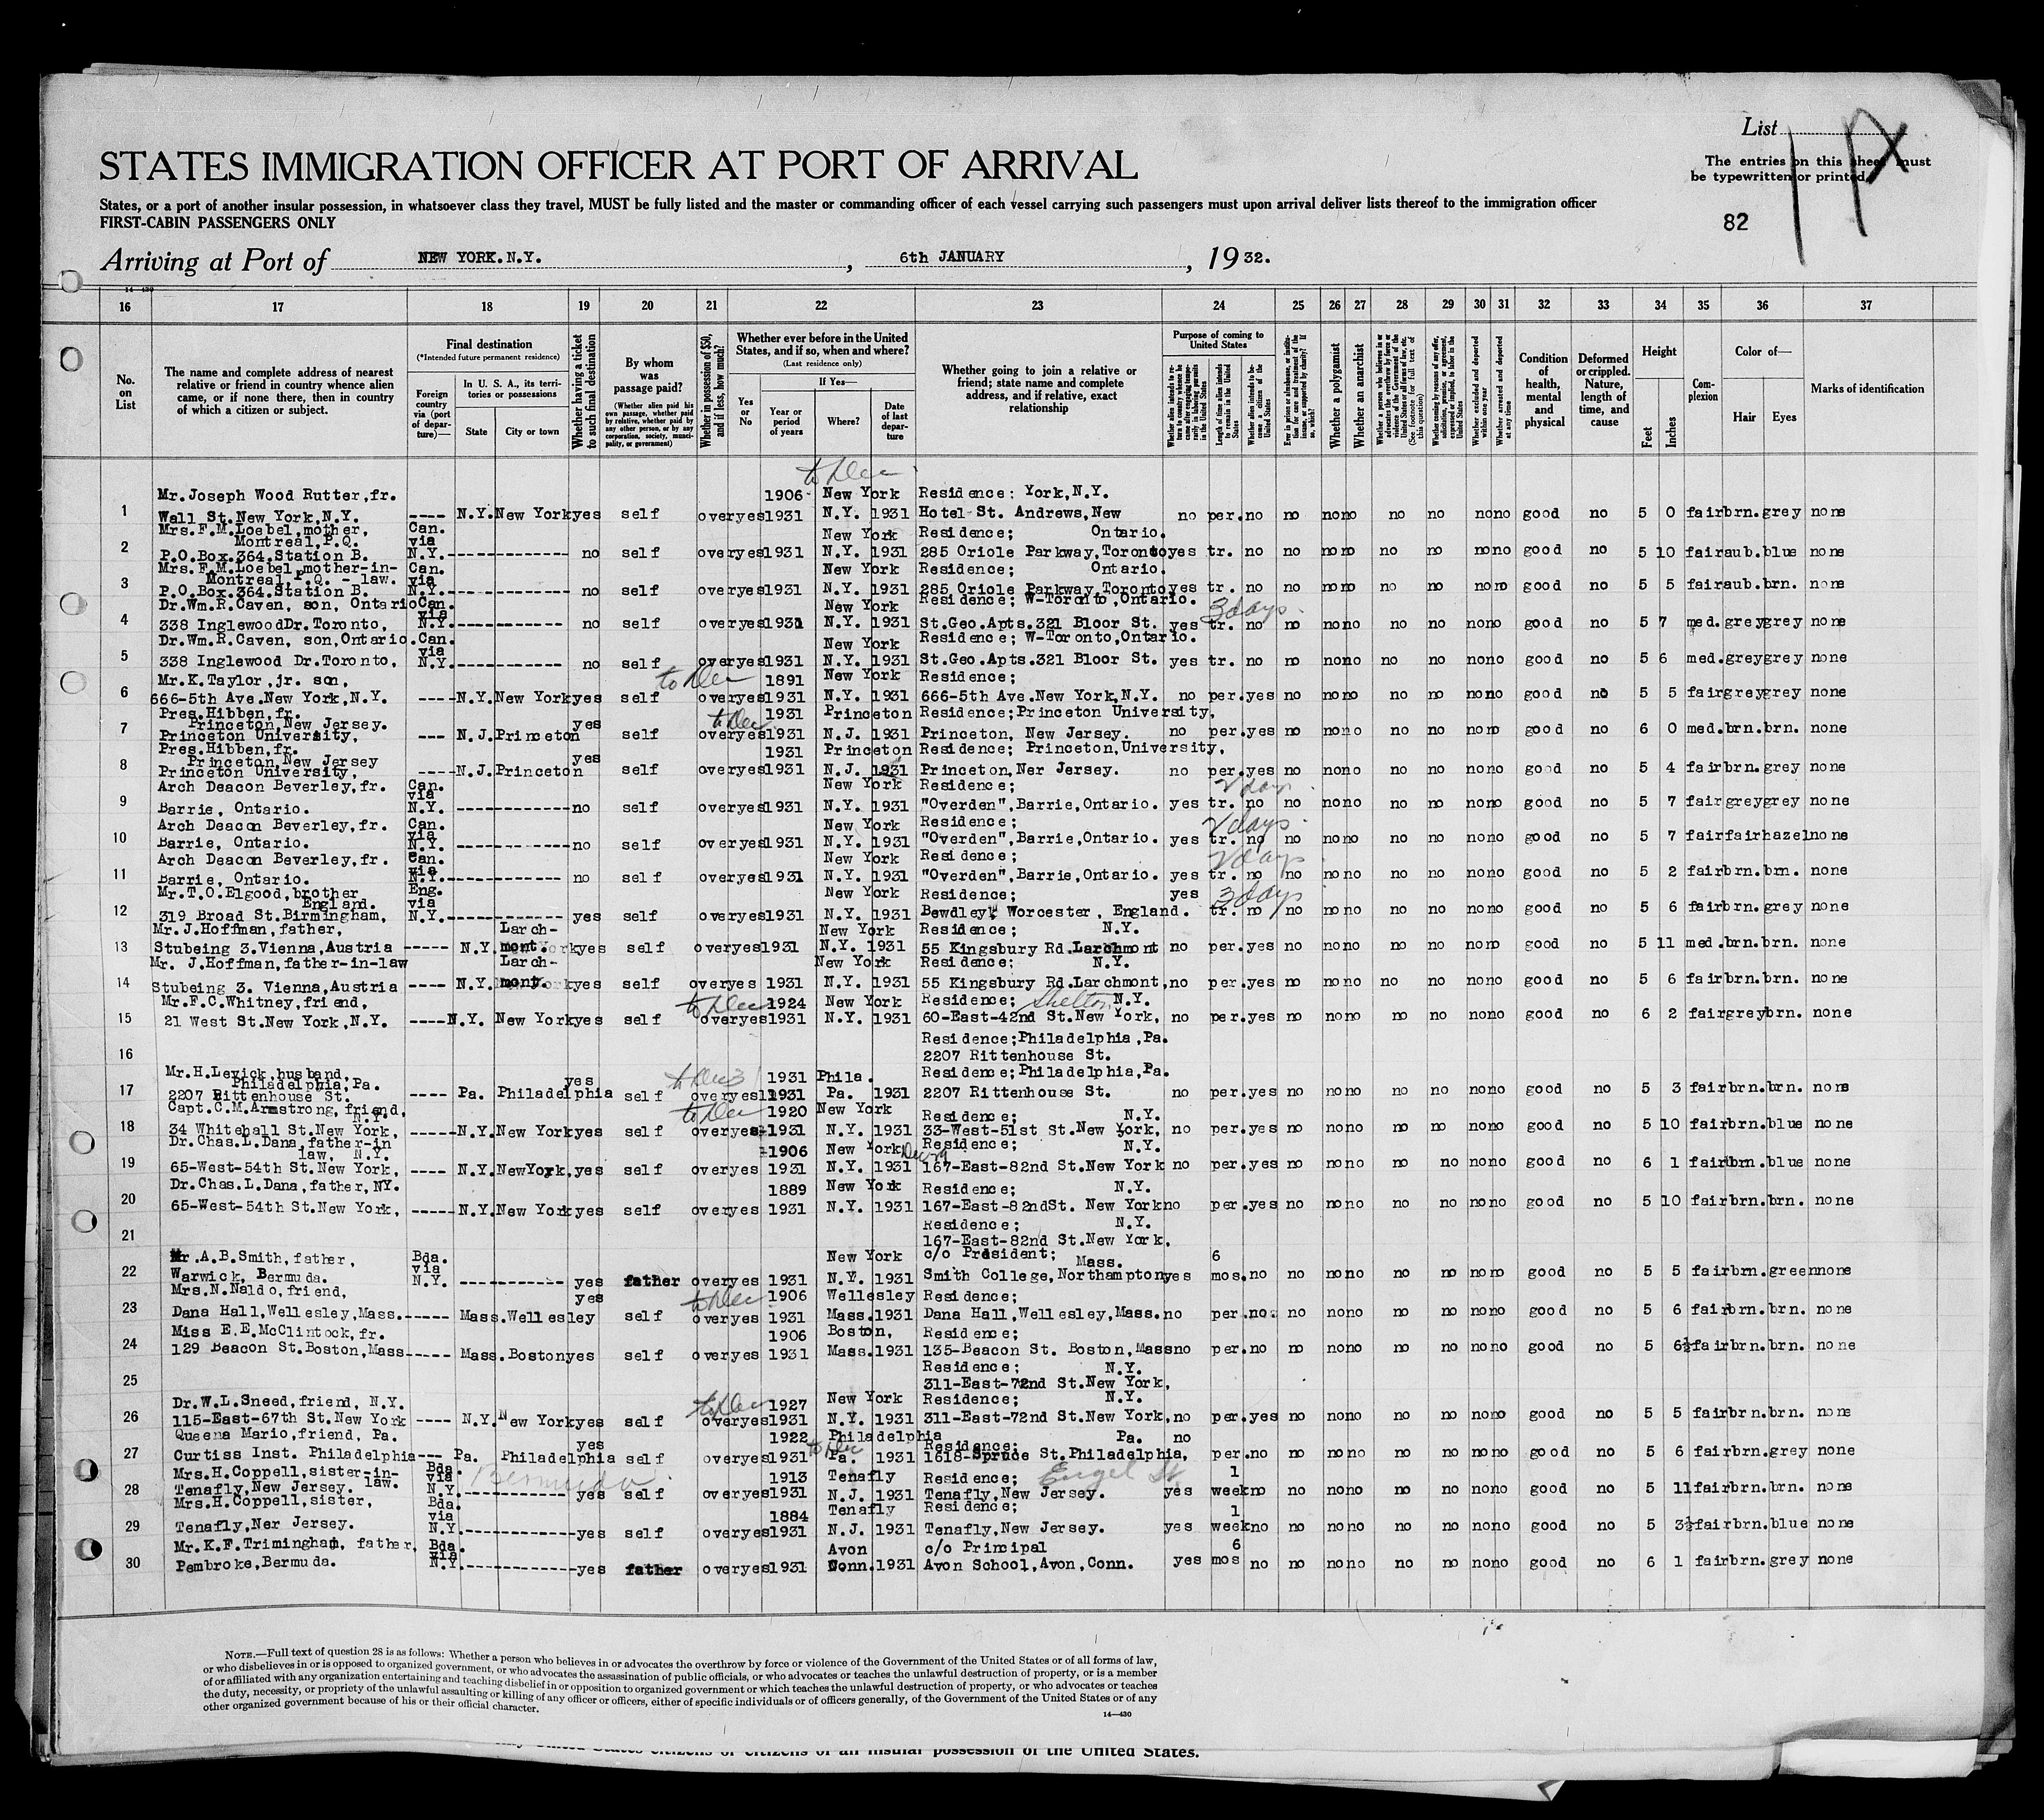 List
STATES IMMIGRATION OFFICER AT PORT OF ARRIVAL
The entries on this sheet must
be typewritten or printed
States, or a port of another insular possession, in whatsoever class they travel, MUST be fully listed and the master or commanding officer of each vessel carrying such passengers must upon arrival deliver lists thereof to the immigration officer
FIRST-CABIN PASSENGERS ONLY
82
Arriving at Port of NEW YORK.N.Y. , 6th JANUARY , 1932.
14-430
16 17 18 19 20 21 22 23 24 25 26 27 28 29 30 31 32 33 34 35 36 37
No. on List
The name and complete address of nearest relative or friend in country whence alien came, or if none there, then in country of which a citizen or subject.
Final destination
(*Intended future permanent residence)
Foreign country via (port of departure)—
In U. S. A., its territories or possessions
State
City or town
Whether having a ticket to such final destination
By whom was passage paid?
(Whether alien paid his own passage, whether paid by relative, whether paid by any other person, or by any corporation, society, municipality, or government)
Whether in possession of $50, and if less, how much?
Whether ever before in the United States, and if so, when and where?
(Last residence only)
Yes or No
If Yes—
Year or period of years
Where?
Date of last departure
Whether going to join a relative or friend; state name and complete address, and if relative, exact relationship
Purpose of coming to United States
Length of time alien intends to remain in the United States
Whether alien intends to become a citizen of the United States
Whether a polygamist
Whether an anarchist
(See footnote for full text of this question)
Whether excluded and deported within one year
Whether arrested and deported at any time
Condition of health, mental and physical
Deformed or crippled. Nature, length of time, and cause
Height
Feet
Inches
Complexion
Color of—
Hair
Eyes
Marks of identification
to Dec
Mr.Joseph Wood Rutter,fr. 1906- New York Residence: York,N.Y.
1 Wall St.New York,N.Y. ---- N.Y. New York yes self over yes 1931 N.Y. 1931 Hotel St. Andrews,New no per. no no no no no no no no good no 5 0 fair brn. grey none
Mrs.F.M.Loebel,mother, Can. New York Residence; Ontario.
Montreal,P.Q. via
2 P.O.Box.364.Station B. N.Y. ------------- no self over yes 1931 N.Y. 1931 285 Oriole Parkway,Toronto yes tr. no no no no no no no no good no 5 10 fair aub. blue none
Mrs.F.M.Loebel,mother-in- Can. New York Residence; Ontario.
Montreal,P.Q. - law. via
3 P.O.Box.364.Station B. N.Y. ------------- no self over yes 1931 N.Y. 1931 285 Oriole Parkway,Toronto yes tr. no no no no no no no no good no 5 5 fair aub. brn. none
Dr.Wm.R.Caven, son, Ontario Can. via New York Residence; W-Toronto,Ontario. 3 days
4 338 Inglewood Dr.Toronto, N.Y. ------------ no self over yes 1931 N.Y. 1931 St.Geo.Apts.321 Bloor St. yes tr. no no no no no no no no good no 5 7 med. grey grey none
Dr.Wm.R.Caven, son,Ontario. Can. via New York Residence; W-Toronto,Ontario.
5 338 Inglewood Dr.Toronto, N.Y. ------------ no self over yes 1931 N.Y. 1931 St.Geo.Apts.321 Bloor St. yes tr. no no no no no no no no good no 5 6 med. grey grey none
Mr.K.Taylor,jr. son, to Dec 1891 New York Residence;
6 666-5th Ave.New York,N.Y. ---- N.Y. New York yes self over yes 1931 N.Y. 1931 666-5th Ave.New York,N.Y. no per. yes no no no no no no no good no 5 5 fair grey grey none
Pres.Hibben,fr. to Dec 1931 Princeton Residence;Princeton University,
Princeton,New Jersey. yes
7 Princeton University, --- N.J. Princeton self over yes 1931 N.J. 1931 Princeton, New Jersey. no per. yes no no no no no no no good no 6 0 med. brn. brn. none
Pres.Hibben,fr. 1931 Princeton Residence; Princeton,University,
Princeton,New Jersey yes
8 Princeton University, ---- N.J. Princeton self over yes 1931 N.J. 1931 Princeton,Ner Jersey. no per. yes no no no no no no no good no 5 4 fair brn. grey none
Arch Deacon Beverley,fr. Can. via New York Residence;
9 Barrie, Ontario. N.Y. ------------ no self over yes 1931 N.Y. 1931 "Overden",Barrie,Ontario. yes tr. no no no no no no no no good no 5 7 fair grey grey none
Arch Deacon Beverley,fr. Can. via New York Residence; 2 days
10 Barrie, Ontario. N.Y. ------------ no self over yes 1931 N.Y. 1931 "Overden",Barrie,Ontario. yes tr. no no no no no no no no good no 5 7 fair fair hazel none
Arch Deacon Beverley,fr. Can. via New York Residence; 2 days
11 Barrie, Ontario. N.Y. ------------ no self over yes 1931 N.Y. 1931 "Overden",Barrie,Ontario. yes tr. no no no no no no no no good no 5 2 fair brn. brn. none
Mr.T.O.Elgood,brother Eng. New York Residence; yes 3 days
England. via
12 319 Broad St.Birmingham, N.Y. ------------ yes self over yes 1931 N.Y. 1931 Bewdley, Worcester, England. tr. no no no no no no no no good no 5 6 fair brn. grey none
Mr.J.Hoffman,father, Larch- New York Residence; N.Y.
13 Stubeing 3.Vienna,Austria ----- N.Y. mont. yes self over yes 1931 N.Y. 1931 55 Kingsbury Rd.Larchmont no per. yes no no no no no no no good no 5 11 med. brn. brn. none
Mr. J.Hoffman,father-in-law Larch- New York Residence; N.Y.
14 Stubeing 3. Vienna,Austria ---- N.Y. mont. yes self over yes 1931 N.Y. 1931 55 Kingsbury Rd.Larchmont, no per. yes no no no no no no no good no 5 6 fair brn. brn. none
Mr.F.C.Whitney,friend, to Dec 1924 New York Residence; Shelton N.Y.
15 21 West St.New York,N.Y. ---- N.Y. New York yes self over yes 1931 N.Y. 1931 60-East-42nd St.New York, no per. yes no no no no no no no good no 6 2 fair grey brn. none
Residence;Philadelphia,Pa.
16 2207 Rittenhouse St.
Mr.H.Levick,husband, yes 1931 Phila. Residence;Philadelphia,Pa.
Philadelphia,Pa.
17 2207 Rittenhouse St. ---- Pa. Philadelphia self over yes 1931 Pa. 1931 2207 Rittenhouse St. no per. yes no no no no no no no good no 5 3 fair brn. brn. none
Capt.C.M.Armstrong,friend, to Dec 1920 New York Residence; N.Y.
N.Y.
18 34 Whitehall St.New York, ----- N.Y. New York yes self over yes 1931 N.Y. 1931 33-West-51st St.New York, no per. yes no no no no no no no good no 5 10 fair brn. blue none
Dr.Chas.L.Dana,father-in 1906 New York Residence; N.Y.
law, N.Y.
19 65-West-54th St.New York, ---- N.Y. New York, yes self over yes 1931 N.Y. 1931 167-East-82nd St.New York no per. yes no no no no no no no good no 6 1 fair brn. blue none
Dr.Chas.L.Dana,father,NY. 1889 New York Residence; N.Y.
20 65-West-54th St.New York, ----- N.Y. New York yes self over yes 1931 N.Y. 1931 167-East-82nd St. New York no per. yes no no no no no no no good no 5 10 fair brn. brn. none
Residence; N.Y.
21 167-East-82nd St.New York,
Mr.A.B.Smith,father, Bda. via New York c/o President; Mass. 6
22 Warwick, Bermuda. N.Y. ----------- yes father over yes 1931 N.Y. 1931 Smith College,Northampton yes mos. no no no no no no no no good no 5 5 fair brn. green none
Mrs.N.Naldo,friend, yes to Dec 1906 Wellesley Residence;
23 Dana Hall,Wellesley,Mass. ----- Mass. Wellesley self over yes 1931 Mass. 1931 Dana Hall,Wellesley,Mass. no per. no. no no no no no no no good no 5 6 fair brn. brn. none
Miss E.E.McClintock,fr. 1906 Boston, Residence;
24 129 Beacon St.Boston,Mass ----- Mass. Boston yes self over yes 1931 Mass. 1931 135-Beacon St. Boston,Mass no per. no no no no no no no no good no 5 6½ fair brn. brn. none
Residence; N.Y.
25 311-East-72nd St.New York,
Dr.W.L.Sneed,friend, N.Y. to Dec 1927 New York Residence; N.Y.
26 115-East-67th St.New York ---- N.Y. New York yes self over yes 1931 N.Y. 1931 311-East-72nd St.New York, no per. yes no no no no no no no good no 5 5 fair brn. brn. none
Queena Mario,friend, Pa. yes 1922 to Dec Philadelphia Residence; Pa. no
27 Curtiss Inst. Philadelphia --- Pa. Philadelphia self over yes 1931 Pa. 1931 1618-Spruce St.Philadelphia, per. no no no no no no no no good no 5 6 fair brn. grey none
Mrs.H.Coppell,sister-in- Bda. via Bermuda 1913 Tenafly Residence; Engel St. 1
law.
28 Tenafly,New Jersey. N.Y. yes self over yes 1931 N.J. 1931 Tenafly,New Jersey. yes week no no no no no no no no good no 5 11 fair brn. brn. none
Mrs.H.Coppell,sister, Bda. via 1884 Tenafly Residence; 1
29 Tenafly,Ner Jersey. N.Y. ------------- yes self over yes 1931 N.J. 1931 Tenafly,New Jersey. yes week no no no no no no no no good no 5 3½ fair brn. blue none
Mr.K.F.Trimingham, father, Bda. via Avon c/o Principal 6
30 Pembroke,Bermuda. N.Y. ------------- yes father over yes 1931 Conn. 1931 Avon School,Avon,Conn. yes mos no no no no no no no no good no 6 1 fair brn. grey none
NOTE.—Full text of question 28 is as follows: Whether a person who believes in or advocates the overthrow by force or violence of the Government of the United States or of all forms of law,
or who disbelieves in or is opposed to organized government, or who advocates the assassination of public officials, or who advocates or teaches the unlawful destruction of property, or is a member
of or affiliated with any organization entertaining and teaching disbelief in or opposition to organized government or which teaches the unlawful destruction of property, or who advocates or teaches
the duty, necessity, or propriety of the unlawful assaulting or killing of any officer or officers, either of specific individuals or of officers generally, of the Government of the United States or of any
other organized government because of his or their official character.
14—430
United States citizens or citizens of an insular possession of the United States.